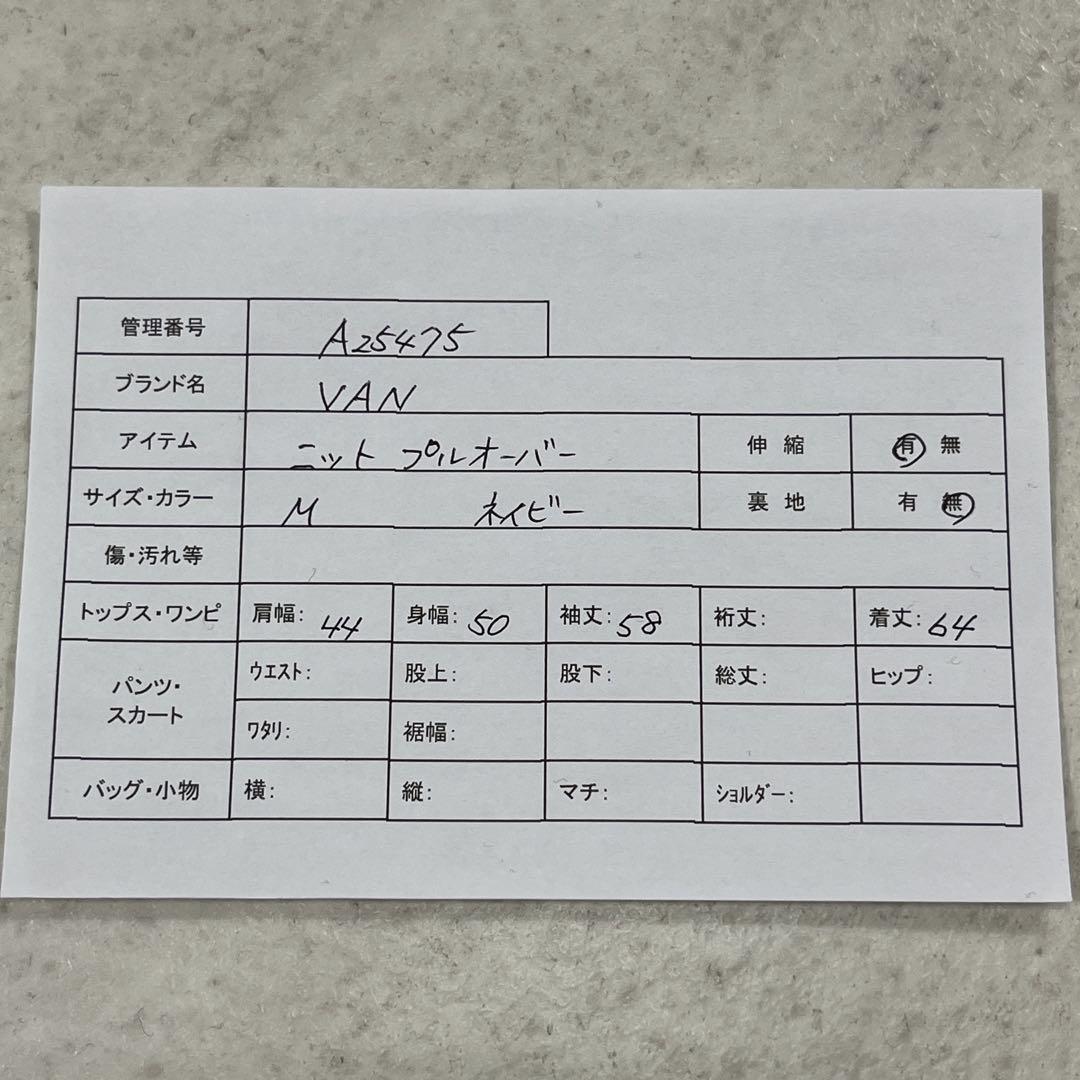 管理番号 A25475
ブランド名 VAN
アイテム ニット プルオーバー 伸縮 有 無
サイズ・カラー M ネイビー 裏地 有 無
傷・汚れ等
トップス・ワンピ 肩幅: 44 身幅: 50 袖丈: 58 裄丈: 着丈: 64
パンツ・スカート ウエスト: 股上: 股下: 総丈: ヒップ:
ワタリ: 裾幅:
バッグ・小物 横: 縦: マチ: ショルダー: